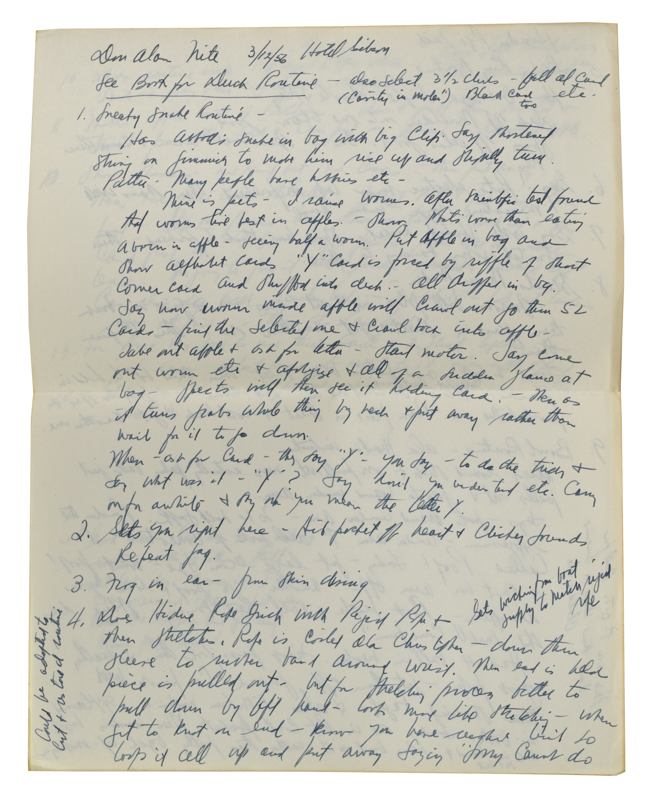 Don Alan Nite 3/12/56 Hotel Gibson
See Book for Duck Routine - also select 3½ clubs - fall al Card
(Cavity in Molar) Black Card too etc.
1. Sneaky Snake Routine -
Has Abbott's snake in bag with big Clip. Say shortened
string on gimmick to make him rise up and slightly turn.
Patter - Many people have hobbies etc -
Mine is pets - I raise worms. After scientific test found
that worms live best in apples. - Show What's worse than eating
a worm in apple - seeing half a worm. Put Apple in bag and
show alphabet cards "Y" Card is forced by riffle of short
corner card and shuffled into deck. - All dropped in bag.
Say now worm inside apple will Crawl out go thru 52
Cards - find the selected one & Crawl back into apple -
Take out apple & ask for letter - Start motor. Say come
out worm etc & apologize & all of a sudden glance at
bag - Specs will then see it holding Card. - Then as
it turns grabs whole thing by neck & put away rather than
wait for it to go down.
When - ask for Card - they say "Y" - you say - to do the trick &
say what was it - "Y"? Say don't you understand etc. Carry
on for awhile & say oh you mean the letter Y.
2. Gets you right here - Hits pocket off heart & Clicker sounds
Repeat gag.
3. Frog in ear - from skin diving
4. Does Hindu Rope Trick with Rigid Rope &
Gets from boat
supply to match rigid
rope
then stretches. Rope is coiled ala Christopher - down thru
sleeve to under band around waist. Then end is held
piece is pulled out - but for stretching process better to
pull down by left hand - looks more like stretching - when
get to knot on end - know you have reached limit so
loops it all up and put away saying "Sorry Cannot do
Could be adapted to
Cut & restored routine